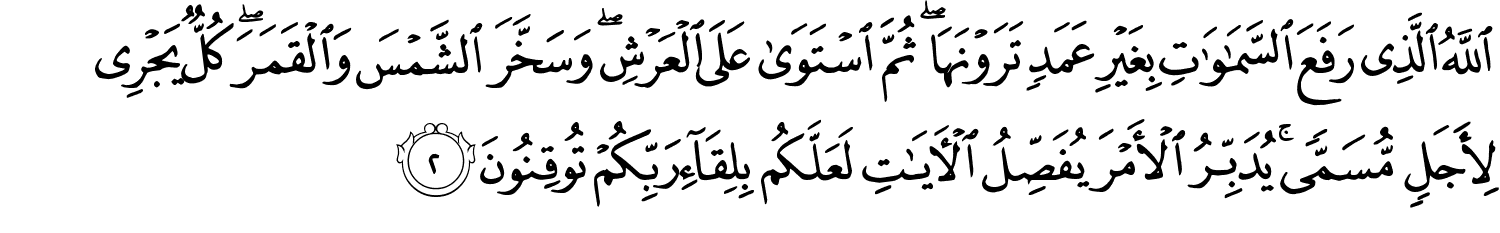 ٱللَّهُ ٱلَّذِى رَفَعَ ٱلسَّمَـٰوَٰتِ بِغَيْرِ عَمَدٍ تَرَوْنَهَا ۖ ثُمَّ ٱسْتَوَىٰ عَلَى ٱلْعَرْشِ ۖ وَسَخَّرَ ٱلشَّمْسَ وَٱلْقَمَرَ ۖ كُلٌّ يَجْرِى
لِأَجَلٍ مُّسَمًّى ۚ يُدَبِّرُ ٱلْأَمْرَ يُفَصِّلُ ٱلْـَٔايَـٰتِ لَعَلَّكُم بِلِقَآءِ رَبِّكُمْ تُوقِنُونَ ٢